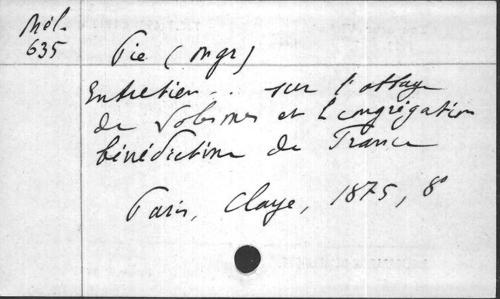 Mél.
635
Pie (Mgr)
Entretien... sur l'abbaye
de Solesmes et la congrégation
bénédictine de France
Paris, Claye, 1875, 8°